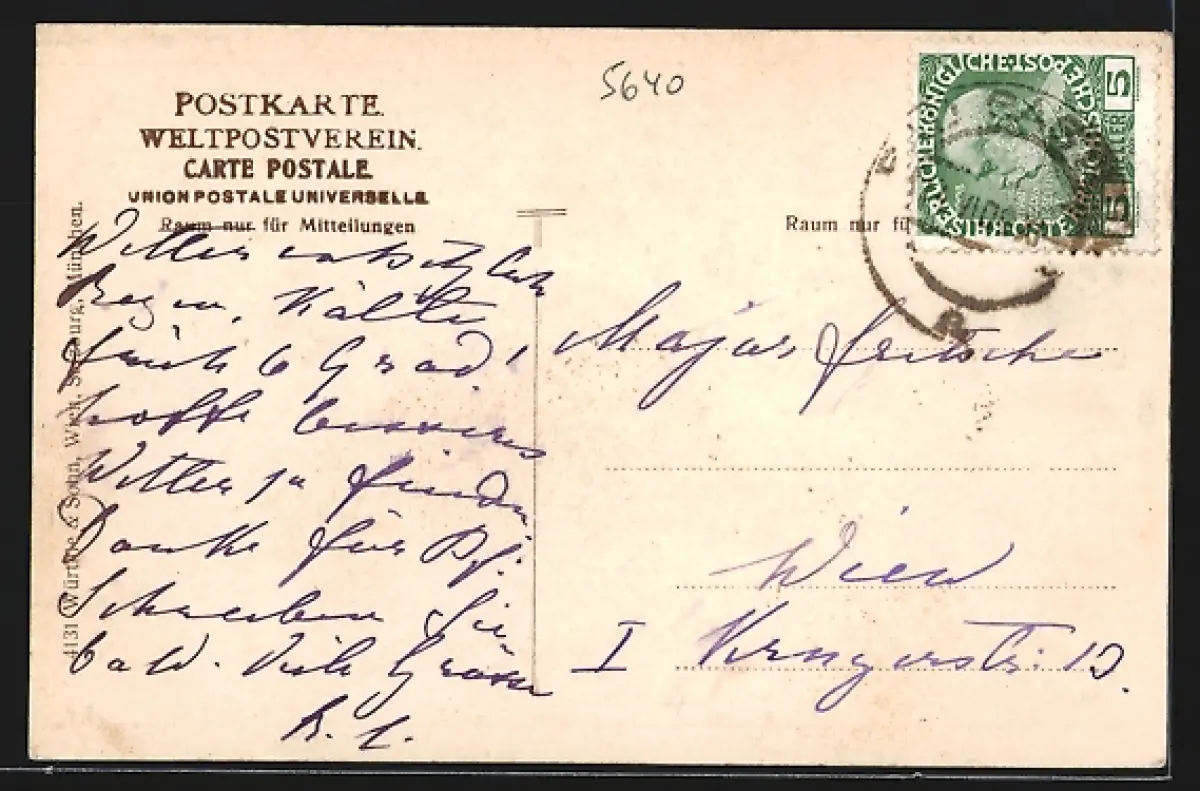 5640
POSTKARTE.
WELTPOSTVEREIN.
CARTE POSTALE.
UNION POSTALE UNIVERSELLE.
Raum nur für Mitteilungen
Wetter
Regen, Kälte
früh 6 Grad!
hoffe besseres
Wetter zu finden
Danke für
Schreiben Sie
bald. Viele Grüsse
Raum nur fü
KAISERLICHE KÖNIGLICHE ÖSTERREICHISCHE POST
5 HELLER 5
Major Fritsche
Wien
I Krugerstr: 13.
4131 Würthle & Sohn, Wien, Salzburg, München.